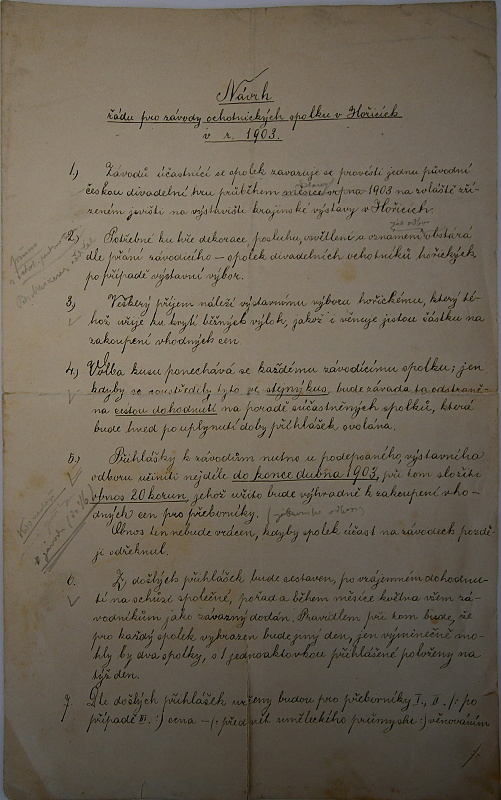 Návrh
řádu pro závody ochotnických spolků v Hořicích
v r. 1903.
1,) Závodů účastnící se spolek zavazuje se provésti jednu původní
českou divadelní hru průběhem měsíce srpna 1903 na zvláště zří-
zeném jevišti na výstavišti krajinské výstavy v Hořicích.
2,) Potřebné ku hře dekorace, posluhu, osvětlení a oznámení obstará
dle přání závodícího – spolek divadelních ochotníků hořických,
po případě výstavní výbor.
3,) Veškerý příjem náleží výstavnímu výboru hořickému, který té-
hož užije ku krytí běžných výloh, jakož i věnuje jistou částku na
zakoupení vhodných cen.
4,) Volba kusu ponechává se každému závodícímu spolku; jen
kdyby se soustředily tyto ve stejný kus, bude závada ta odstraně-
na cestou dohodnutí na poradě súčastněných spolků, která
bude hned po uplynutí doby přihlášek svolána.
5,) Přihlášky k závodům nutno u podepsaného výstavního
odboru učiniti nejdéle do konce dubna 1903, při tom složite
obnos 20 korun, jehož užito bude výhradně k zakoupení vho-
dných cen pro přeborníky.
Obnos ten nebude vrácen, kdyby spolek účast na závodech pozdě-
ji odřeknul.
6. Z došlých přihlášek bude sestaven, po vzájemném dohodnu-
tí na schůzi společné, pořad a během měsíce května všem zá-
vodníkům jako závazný dodán. Pravidlem při tom bude, že
pro každý spolek vyhrazen bude jiný den, jen výminečně mo-
hly by dva spolky, s 1 jednoaktovkou přihlášené položeny na
týž den.
7. Dle došlých přihlášek určeny budou pro přeborníky I., II. /: po
případě III. :/ cena – /: předmět uměleckého průmyslu :/ věnováním